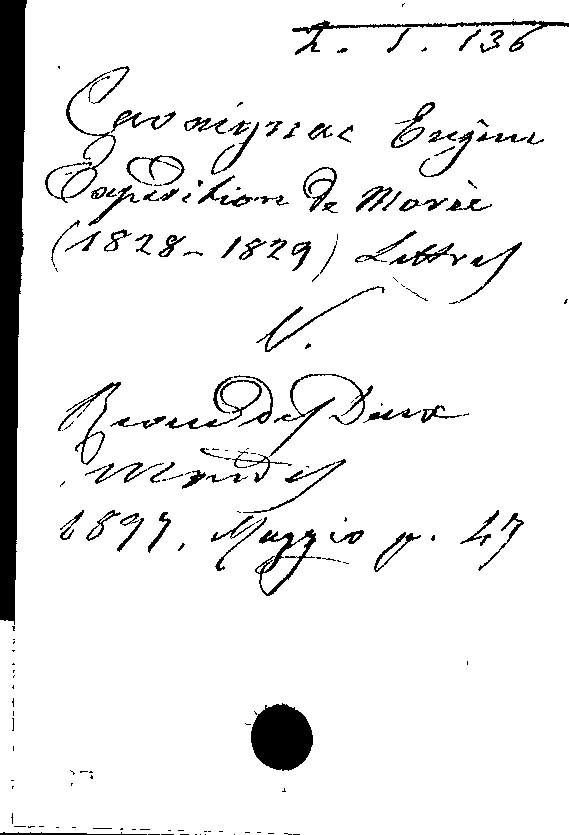 2. 5. 136
Cavaignac Eugène
Expédition de Morée
(1828-1829) Lettres
V.
Revue des Deux
Mondes
1897, Maggio p. 47